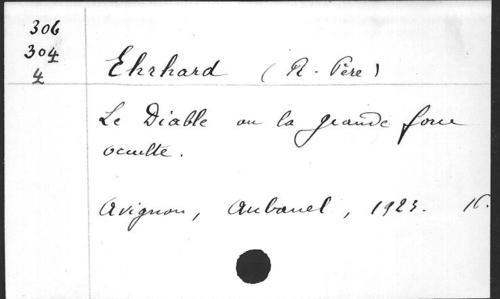 306
304
4
Ehrhard (R. Père)
Le Diable ou la grande force
occulte.
Avignon, Aubanel, 1923. 16.